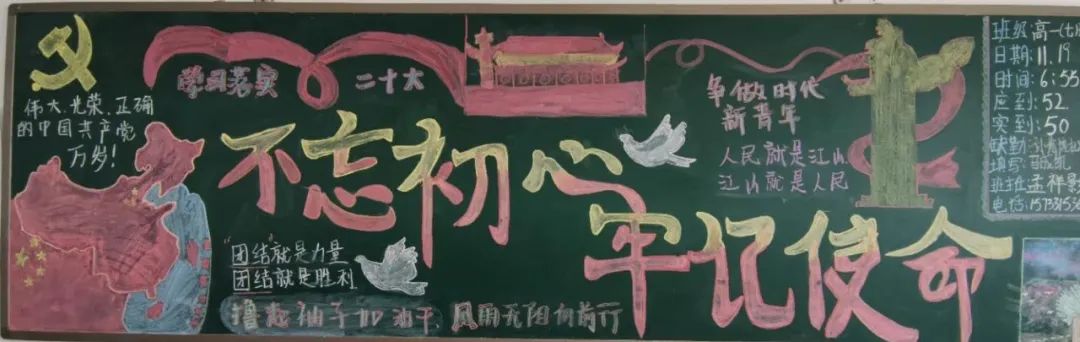 伟大、光荣、正确
的中国共产党
万岁!
学习落实 二十大
不忘初心
牢记使命
"团结"就是力量
团结就是胜利
撸起袖子加油干,风雨无阻向前行
争做时代
新青年
人民就是江山
江山就是人民
班级:高一(七)
日期:11.19
时间:6:55
应到:52
实到:50
缺勤:
填写:
班班:孟祥
电话: